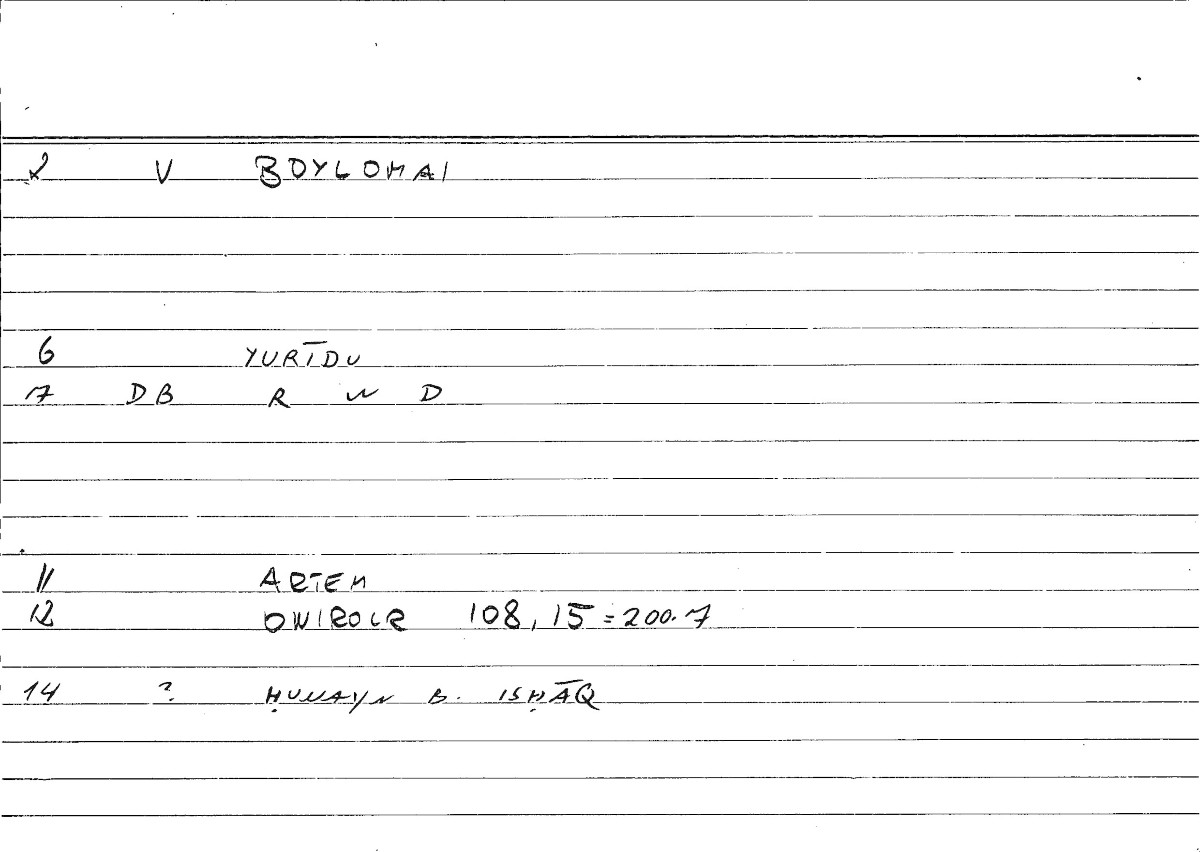 2 V BOYLOMAI
6 YURĪDU
7 DB R W D
11 ARTEM
12 ONIROCR 108, 15 = 200.7
14 ? ḤUNAYN B. ISḤĀQ